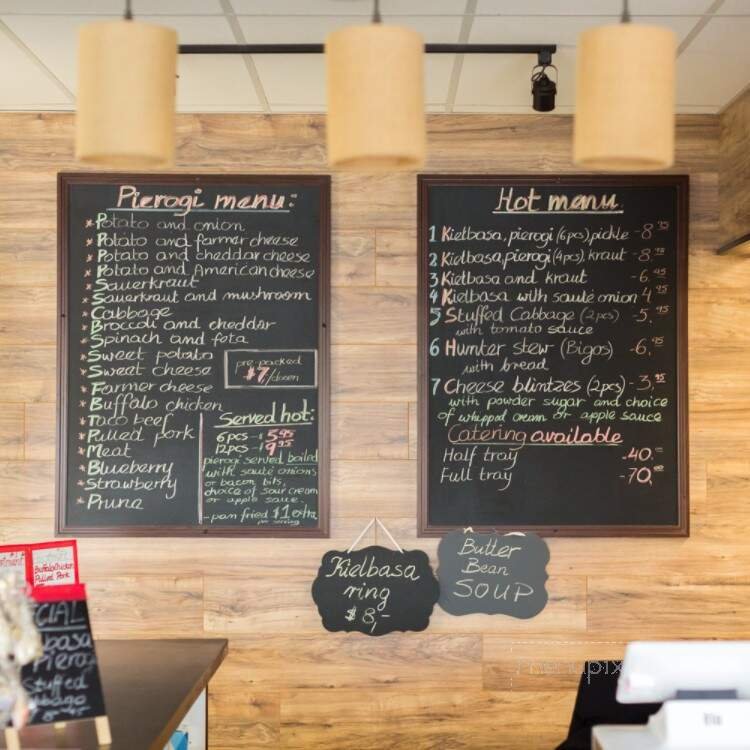 Pierogi menu:
* Potato and onion
* Potato and farmer cheese
* Potato and cheddar cheese
* Potato and American cheese
* Sauerkraut
* Sauerkraut and mushroom
* Cabbage
* Broccoli and cheddar
* Spinach and feta
* Sweet potato
* Sweet cheese
* Farmer cheese
* Buffalo chicken
* Taco beef
* Pulled pork
* Meat
* Blueberry
* Strawberry
* Pruna
pre-packed
$7/dozen
Served hot:
6pcs - $5.95
12pcs - $9.95
pierogi served boiled
with sauté onions
or bacon bits,
choice of sour cream
or apple sauce.
...pan fried $1 extra
per serving
Hot menu
1 Kielbasa, pierogi (6pcs), pickle - 8.95
2 Kielbasa, pierogi (4pcs), kraut - 8.75
3 Kielbasa and kraut - 6.45
4 Kielbasa with sauté onion 4.95
5 Stuffed Cabbage (2pcs) - 5.95
with tomato sauce
6 Hunter stew (Bigos) - 6.45
with bread
7 Cheese blintzes (2pcs) - 3.95
with powder sugar and choice
of whipped cream or apple sauce
Catering available
Half tray - 40.-
Full tray - 70.-
Kielbasa
ring
$8,-
Butter
Bean
SOUP
Buffalo Chicken
Pulled Pork
CIAL
basa
Pierogi
Stuffed
menupix